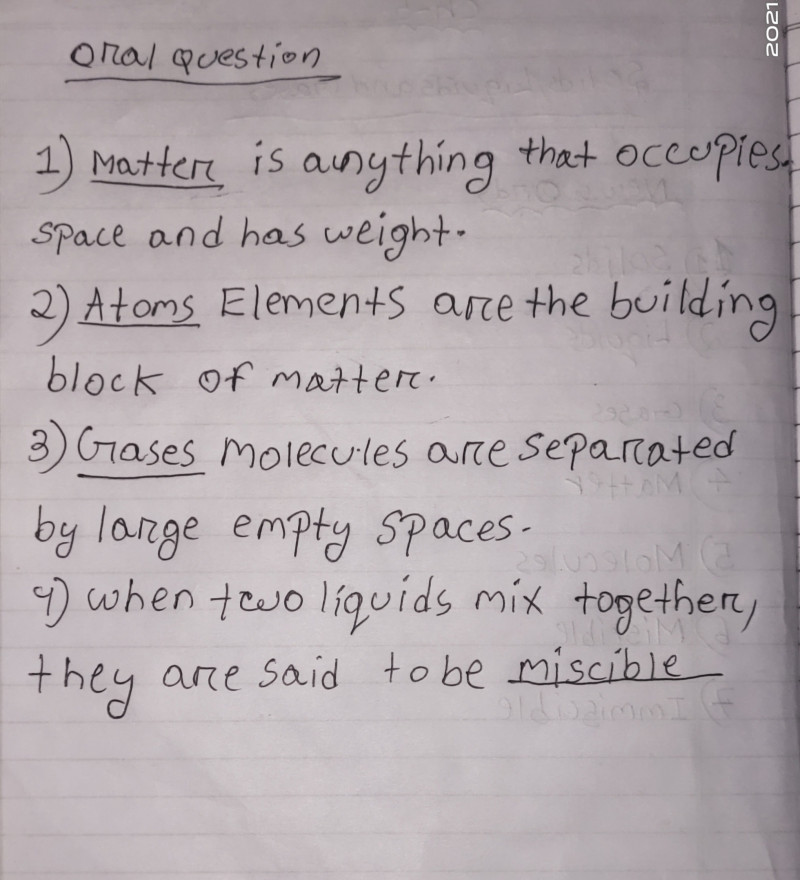 Oral question
1) Matter is anything that occupies
space and has weight.
2) Atoms Elements are the building
block of matter.
3) Gases molecules are separated
by large empty spaces.
4) when two liquids mix together,
they are said to be miscible
2021